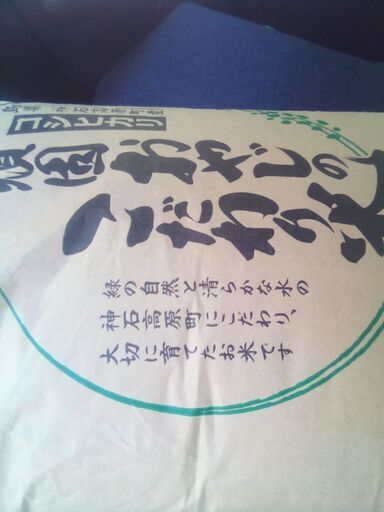 島県 神石高原町産
コシヒカリ
頑固おやじの
こだわり米
緑の自然と清らかな水の
神石高原町にこだわり、
大切に育てたお米です